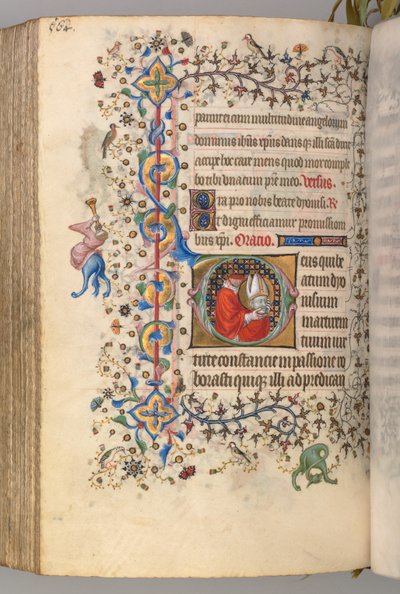 262.
paruit ei cum multitudine angelorum
dominus ihūs xp̄us dans q illi
accipe hoc care meus quod mox comple
bo tibi una cum pr̄e meo. Versus.
Ora pro nobis beate dyonisi. R
Ut digni efficiamur promissioni
bus xp̄i. Oratio.
Deus qui be
atum dyo
nisium
martirem
tuum uir
tute constancie in passione ro
borasti quiq illi ad predican